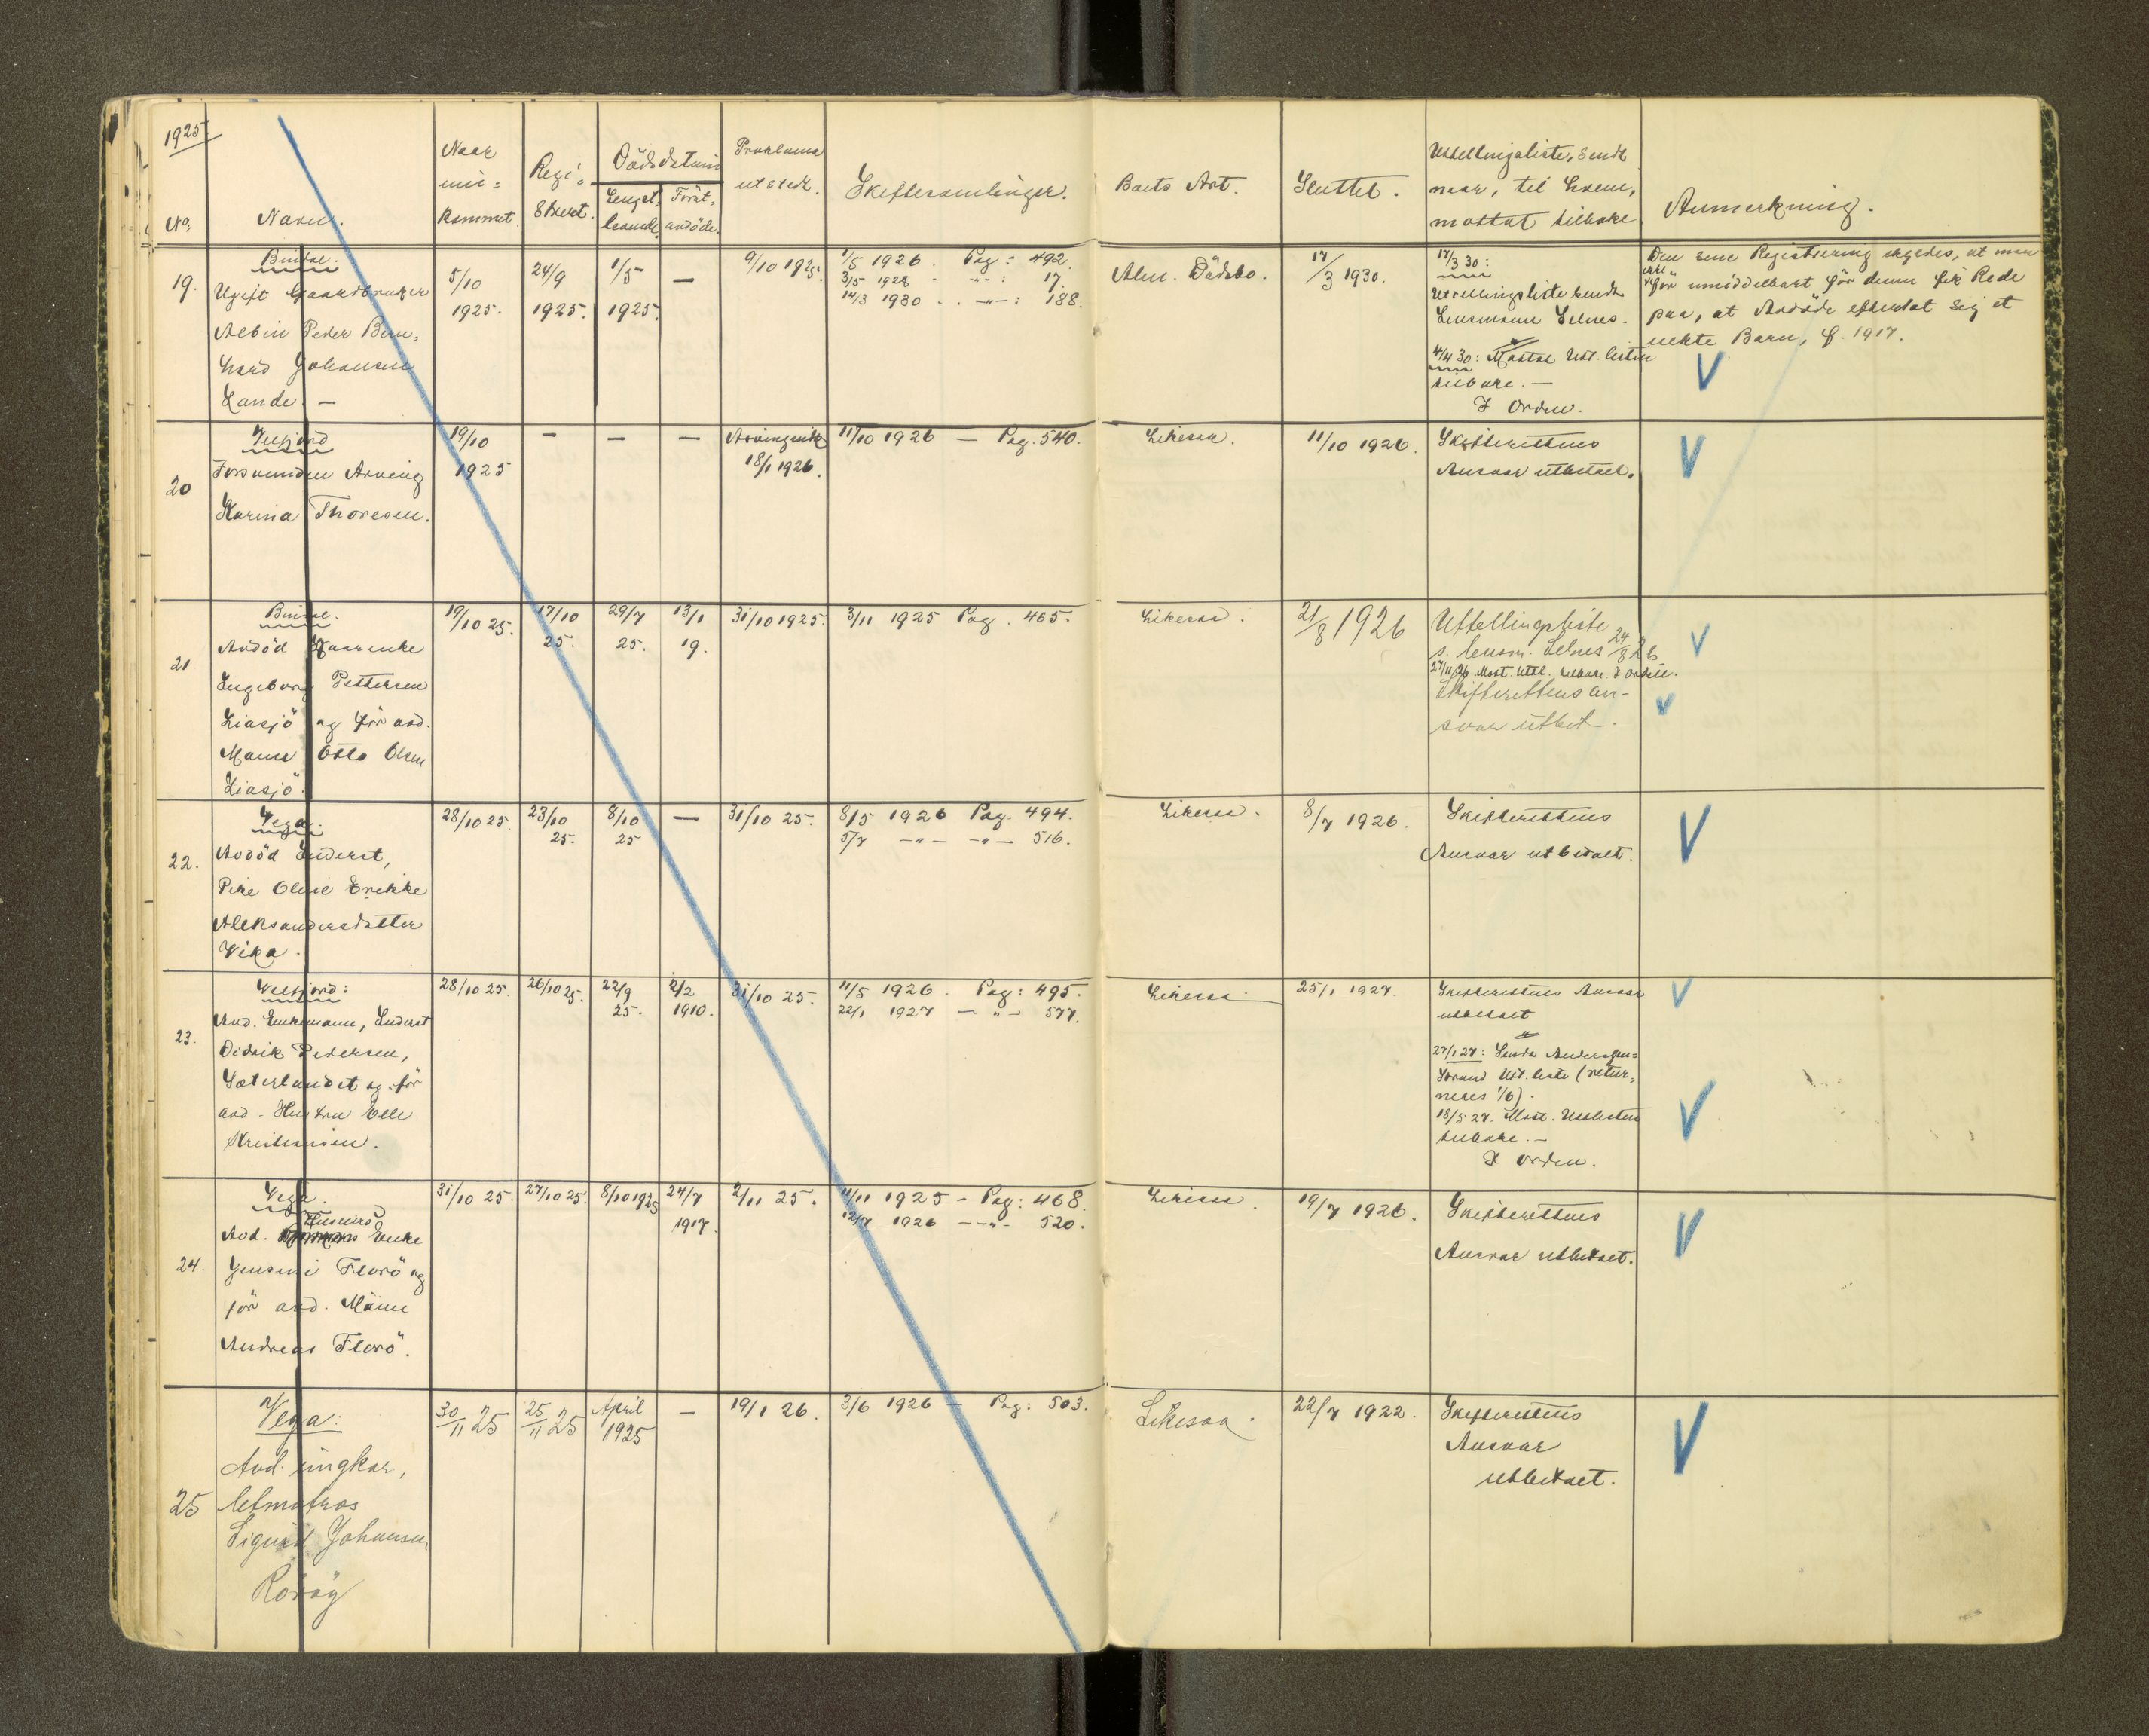 1925
No. Navn. Naar inn= kommet Regi= strert. Dödsdatum Lengst= levende Först= avdöde. Proklama utstedt. Skiftesamlinger. Boets Art. Sluttet. Uttellingsliste, sendt naar, til hvem, mottat tilbake Anmerkning.
19. Bindal.
Ugift Gaardbruker
Albin Peder Bern=
hard Johansen
Lande. —
5/10
1925.
24/9
1925.
1/5
1925.
—
9/10 1925.
1/5 1926. Pag: 492.
3/5 1928 - -"- : 17.
14/3 1930 - . -"- : 188.
Alm. Dödsbo.
17/3 1930.
17/3 30:
Uttellingsliste sendt
Lensmann Selnes.
4/4 30: Mottat Utt. listen
tilbake. —
I Orden.
Den sene Registrering skyldes, at man
ikke
för umiddelbart för denne fik Rede
paa, at Avdöde efterlot sig et
uekte Barn, f. 1917.
20 Velfjord
Forsvunden Arving
Karina Thoresen.
19/10
1925
—
—
—
18/1 1926.
11/10 1926 — Pag. 540.
Likesaa.
11/10 1926.
Skifterettens
Ansvar utbetalt.
21 Bindal.
Avdöd Kaarenke
Ingeborg Pettersen
Liasjö ogför avd.
Mann Otto Olsen
Liasjö.
19/10 25.
17/10
25.
29/7
25.
13/1
19.
31/10 1925.
3/11 1925 Pag. 465.
Likesaa.
21/8 1926
Uttellingsliste
s. lensm. Selnes 24/8 26
27/11 26 Mott. Uttl. tilbake. I orden.
Skifterettens an-
svar utbet.
22. Vega.
Avdöd Inderst,
Pike Oline Erikke
Aleksandersdatter
Vika.
28/10 25.
23/10
25.
8/10
25
—
31/10 25.
8/5 1926 Pag. 494.
5/7 -"- -"- 516.
Likesaa.
8/7 1926.
Skifterettens
Ansvar utbetalt.
23. Velfjord:
Avd. Enkemann, Inderst
Didrik Pedersen,
Sæterlandet og för
avd. Hustru Elle
Kristensen.
28/10 25.
26/10 25.
22/9
25.
2/2
1910.
31/10 25.
11/5 1926. Pag: 495.
22/1 1927 — " — 577.
Likesaa.
25/1 1927.
Skifterettens Ansvar
utbetalt
27/1 27: Sendt Anders
Strand Utt. liste (retur=
neres 1/6).
18/5 27. Mott. Uttlisten
tilbake. —
I orden.
24. Vega.
Huseiers
Avd. Enke
Jensine Florö og
för avd. Mann
Andreas Florö.
31/10 25.
27/10 25.
8/10 1925
24/7
1917.
2/11 25.
11/11 1925 - Pag: 468.
12/7 1926 -"- 520.
Likesaa.
19/7 1926.
Skifterettens
Ansvar utbetalt.
25 Vega:
Avd. ungkar,
letmatros
Sigurd Johansen
Röröy
30/11 25
25/11 25
April
1925
—
19/1 26.
3/6 1926 — Pag: 503.
Likesaa.
22/7 1922.
Skifterettens
Ansvar
utbetalt.